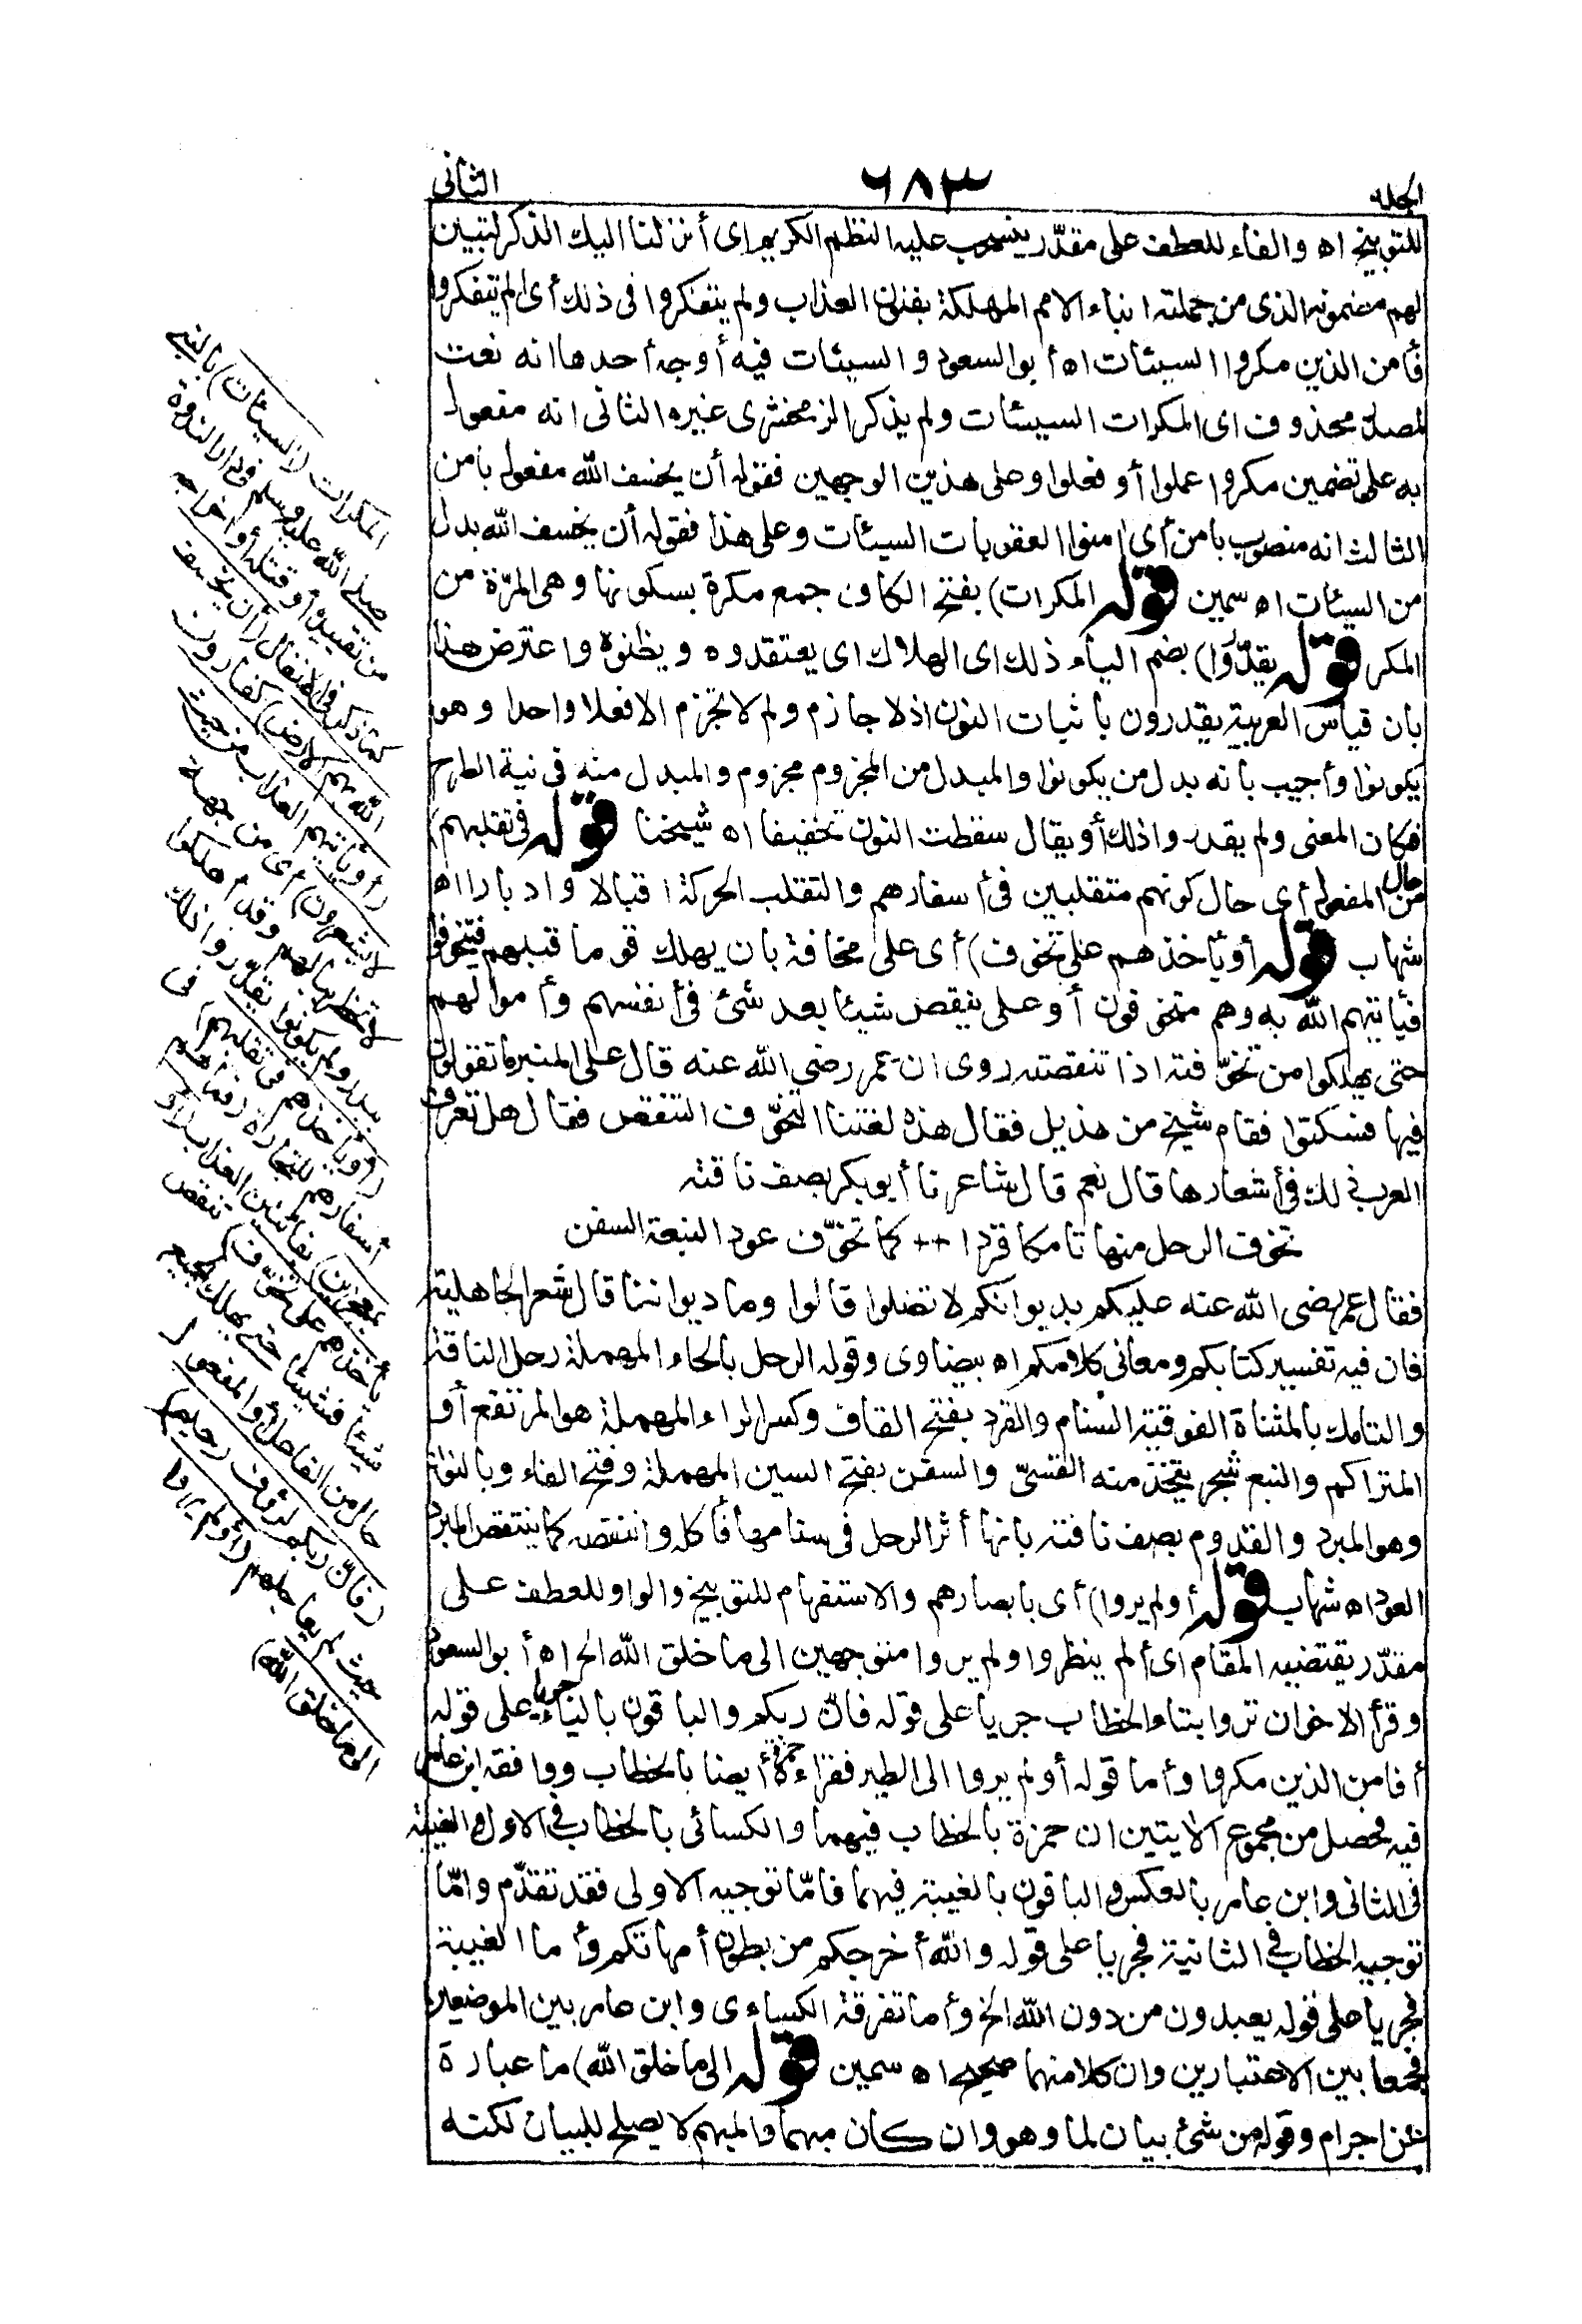 الجلد
٦٨٣
الثانى
للتوبيخ اه والفاء للعطف على مقدّر ينسحب عليه النظم الكريم اى أنزلنا اليك الذكر لتبين
لهم مضمونه الذى من جملته انباء الامم المهلكة بفنون العذاب ولم يتفكروا فى ذلك أى الم يتفكروا
فأمن الذين مكروا السيئات اه أبو السعود والسيئات فيه أوجه أحدها انه نعت
لمصدر محذوف اى المكرات السيئات ولم يذكر الزمخشرى غيره الثانى انه مفعول
به على تضمين مكروا عملوا أو فعلوا وعلى هذين الوجهين فقوله أن يخسف الله مفعول بامن
الثالث انه منصوب بامن أى امنوا العقوبات السيئات وعلى هذا فقوله أن يخسف الله بدل
من السيئات اه سمين قوله المكرات) بفتح الكاف جمع مكرة بسكونها وهى المرّة من
المكر قوله يقدّروا) بضم الياء ذلك اى الهلاك اى يعتقدوه ويظنوه واعترض هذا
بان قياس العربية يقدرون باثبات النون اذ لا جازم ولم لا تجزم الا فعلا واحدا وهو
يكونوا وأجيب بانه بدل من يكونوا والمبدل من المجزوم مجزوم والمبدل منه فى نية الطرح
فكان المعنى ولم يقدروا ذلك أو يقال سقطت النون تخفيفا اه شيخنا قوله فى تقلبهم)
حال
من المفعول أى حال كونهم متقلبين فى أسفارهم والتقلب الحركة اقبالا وادبارا اه
شهاب قوله أو يأخذهم على تخوف) أى على مخافة بان يهلك قوما قبلهم فيتخوفوا
فيأتيهم الله به وهم متخوفون أو على ينقص شيئا بعد شئ فى أنفسهم وأموالهم
حتى يهلكوا من تخوّفته اذا تنقصته روى ان عمر رضى الله عنه قال على المنبر ما تقولون
فيها فسكتوا فقام شيخ من هذيل فقال هذه لغتنا التخوّف التنقص فقال هل تعرف
العرب ذلك فى أشعارها قال نعم قال شاعرنا أبو بكر يصف ناقته
تخوف الرحل منها تامكا قردا ++ كما تخوّف عود النبعة السفن
فقال عمر رضى الله عنه عليكم بديوانكم لا تضلوا قالوا وما ديواننا قال شعر الجاهلية
فان فيه تفسير كتابكم ومعانى كلامكم اه بيضاوى وقوله الرحل بالحاء المهملة رحل الناقة
والتامك بالمثناة الفوقية السنام والقرد بفتح القاف وكسر الراء المهملة هو المرتفع أو
المتراكم والنبع شجر يتخذ منه القسىّ والسفن بفتح السين المهملة وفتح الفاء وبالنون
وهو المبرد والقدوم يصف ناقته بانها أثر الرحل فى سنامها فأكله وانتقصه كما ينتقص المبرد
العود اه شهاب قوله أولم يروا) أى بابصارهم والاستفهام للتوبيخ والواو للعطف على
مقدّر يقتضيه المقام اى ألم ينظروا ولم يروا متوجهين الى ما خلق الله الخ اه أبو السعود
وقرأ الاخوان تروا بتاء الخطاب جريا على قوله فانّ ربكم والباقون بالياء جريا على قوله
أفامن الذين مكروا وأما قوله أولم يروا الى الطير فقراءة حمزة أيضا بالخطاب ووافقه ابن عامر
فيه فحصل من مجموع الايتين ان حمزة بالخطاب فيهما والكسائى بالخطاب فى الاول والغيبة
فى الثانى وابن عامر بالعكس والباقون بالغيبة فيهما فامّا توجيه الاولى فقد تقدّم وامّا
توجيه الخطاب فى الثانية فجريا على قوله والله أخرجكم من بطون أمهاتكم وأما الغيبة
فجريا على قوله يعبدون من دون الله الخ وأما تفرقة الكساءى وابن عامر بين الموضعين
فجمعا بين الاعتبارين وان كلا منهما صحيح اه سمين قوله الى ما خلق الله) ما عبارة
عن اجرام وقوله من شئ بيان لما وهو وان كان مبهما والمبهم لا يصلح للبيان لكنه
المكرات (السيئات) بالنبى
صلى الله عليه وسلم فى دار الندوة
من تقييده أو قتله أو اخراجه
كما ذكر فى الانفال (أن يخسف
الله بهم الارض) كقارون
(أو يأتيهم العذاب من حيث
لا يشعرون) أى من جهة
لا تخطر ببالهم وقد أهلكوا
ببدر ولم يكونوا يقدروا ذلك
(أو يأخذهم فى تقلبهم) فى
أسفارهم للتجارة (فما هم
بمعجزين) بفائتين العذاب (أو
يأخذهم على تخوّف) تنقص
شيئا فشيئا حتى يهلك الجميع
حال من الفاعل أو المفعول
(فانّ ربكم لرؤف رحيم)
حيث لم يعاجلهم (أولم يروا
الى ما خلق الله)